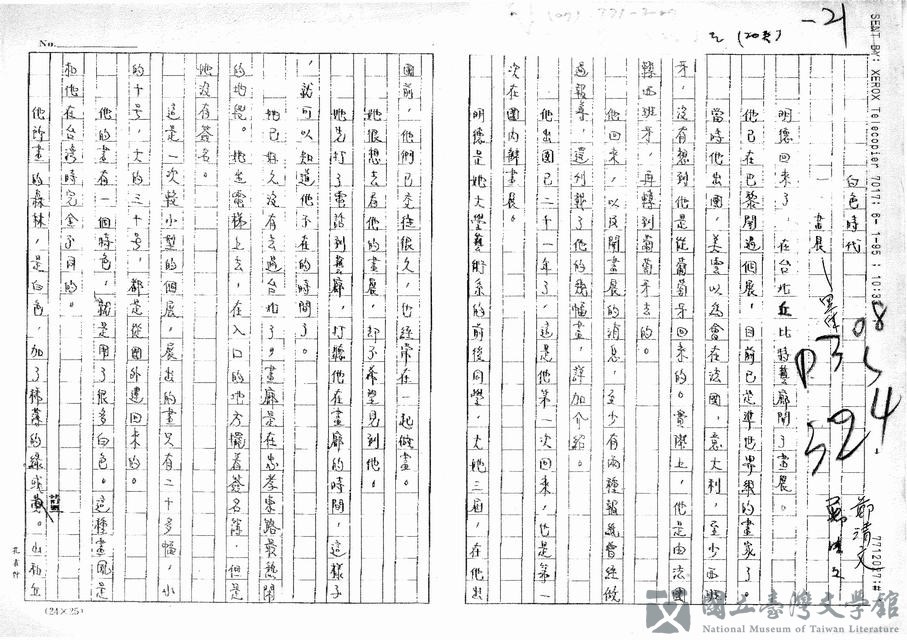 SENT BY: XEROX Telecopier 7017; 6- 1-95 ; 10:3
7712077;#
-21
(20多)
08
P3
524
鄭清文
白色時代
畫展
明德回來了,在台北丘比特藝廊開了畫展。
他已在巴黎開過個展,目前已是準世界級的畫家了。
當時他出國,美雲以為會在法國,意大利,至少西班
牙,沒有想到他是從葡萄牙回來的。實際上,他是由法國
轉西班牙,再轉到葡萄牙去的。
他回來,以及開畫展的消息,至少有兩種報紙曾經做
過報導,還刊載了他的幾幅畫,詳加介紹。
他出國已二十一年了,這是他第一次回來,也是第一
次在國內辦畫展。
明德是她大學藝術系的前後同學,大她三屆,在他出
No.
國前,他們已交往很久,也經常在一起做畫。
她很想去看他的畫展,卻不希望見到他。
她先打了電話到藝廊,打聽他在畫廊的時間,這樣子
,就可以知道他不在的時間了。
她已好久沒有去過台北了。畫廊是在忠孝東路最熱鬧
的地段。她坐電梯上去,在入口的地方擺着簽名簿,但是
她沒有簽名。
這是一次較小型的個展,展出的畫只有二十多幅,小
的十號,大的三十號,都是從國外運回來的。
他的畫有一個特色,就是用了很多白色。這種畫風是
和他在台灣時完全不同的。
他所畫的森林,是白色,加了稀薄的綠或黃。山和丘
(24×25)
國立臺灣文學館
National Museum of Taiwan Literature